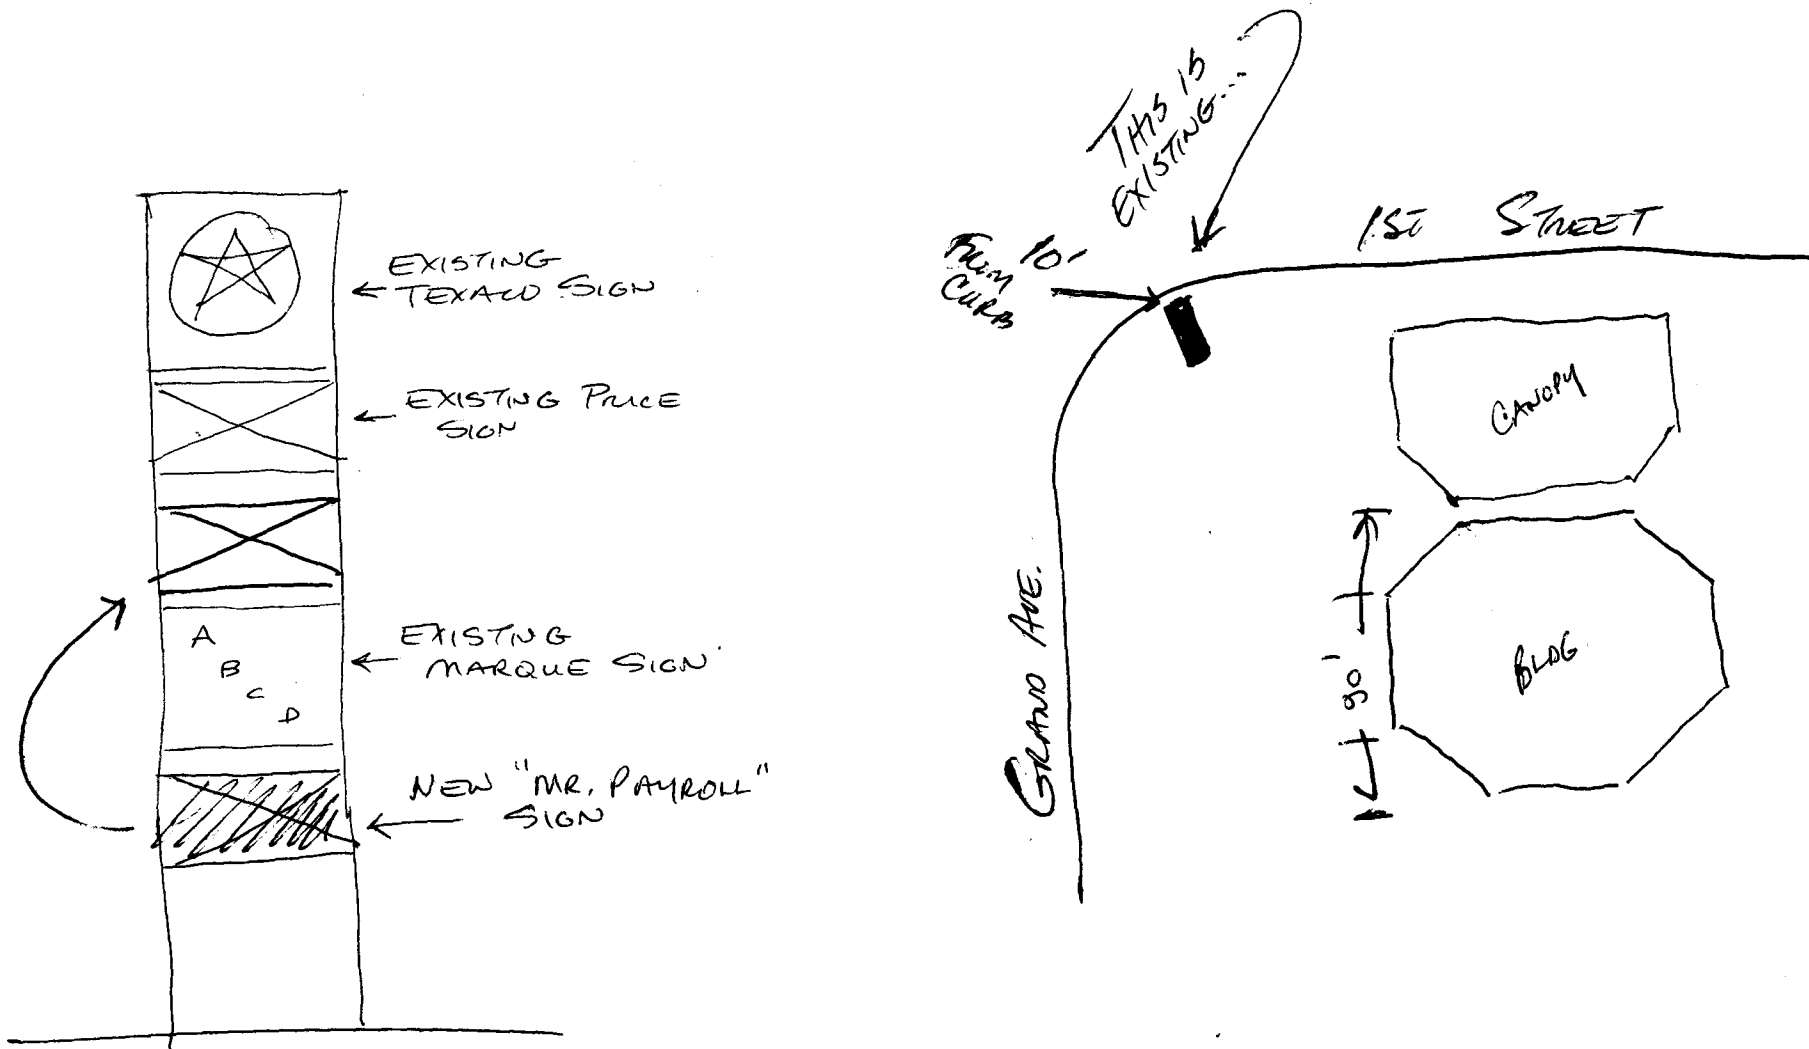 EXISTING
TEXACO SIGN
EXISTING PRICE
SIGN
A
B
C
D
EXISTING
MARQUE SIGN
NEW "MR. PAYROLL"
SIGN
THIS IS
EXISTING...
10'
FROM
CURB
1ST STREET
CANOPY
GRAND AVE.
90'
BLDG